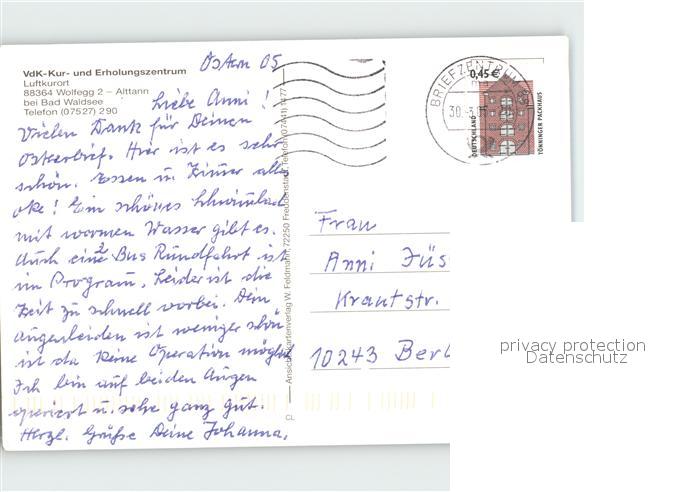 VdK-Kur- und Erholungszentrum
Luftkurort
88364 Wolfegg 2 – Alttann
bei Bad Waldsee
Telefon (07527) 290
Ostern 05
Liebe Anni!
Vielen Dank für Deinen
Osterbrief. Hier ist es sehr
schön. Essen u. Zimmer alles
oke! Ein schönes Schwimmbad
mit warmen Wasser gibt es.
Auch eine 2 Bus Rundfahrt ist
im Program, Leider ist die
Zeit zu schnell vorbei. Dein
Augenleiden ist weniger schön
ist da keine Operation möglich
Ich bin auf beiden Augen
operiert u. sehe ganz gut.
Herzl. Grüße Deine Johanna,
Ansichtskartenverlag W. Feldmann, 72250 Freudenstadt, Telefon (07441)
BRIEFZENTRUM
0,45 €
DEUTSCHLAND
TÖNNINGER PACKHAUS
Frau
Anni Füs
Krautstr.
10243 Berl
privacy protection
Datenschutz